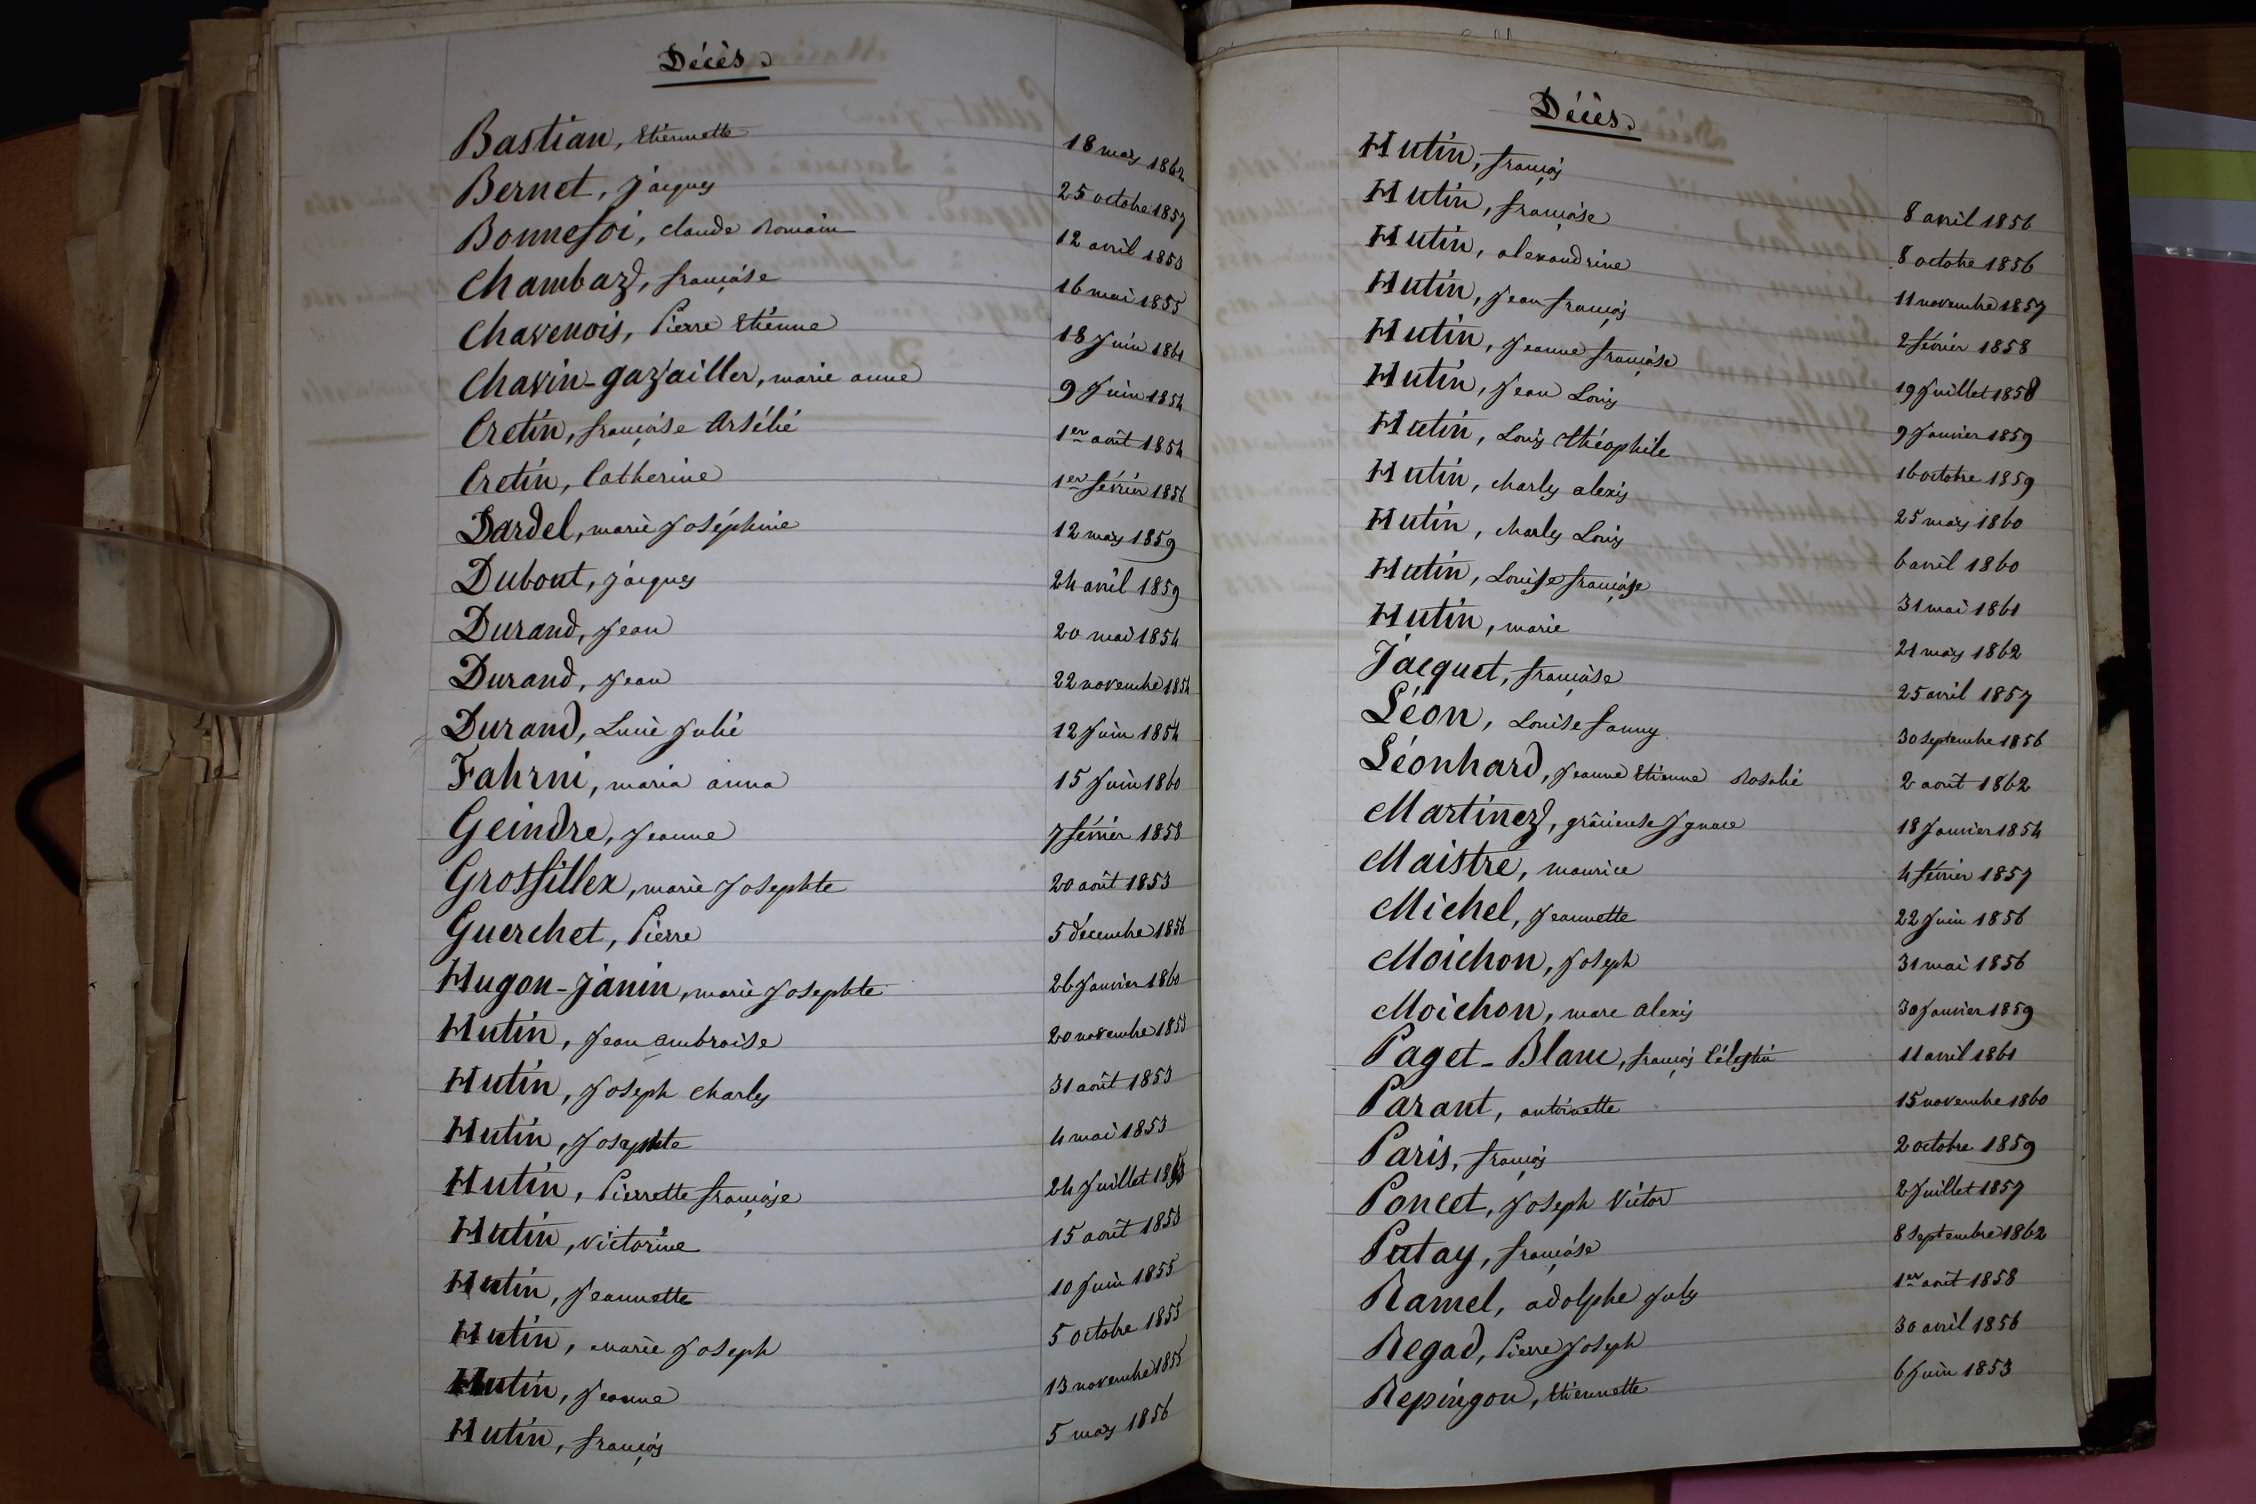 Décès.
Bastian, Etiennette 18 mars 1862
Bernet, Jacques 25 octobre 1857
Bonnefoi, claude Romain 12 avril 1853
Chambaz, françoise 16 mai 1855
Chavenois, Pierre Etienne 18 Juin 1861
Chavin-gazailler, marie anne 9 Juin 1854
Cretin, françoise Arsélie 1er août 1854
Cretin, Catherine 1er février 1856
Dardel, marie Joséphine 12 mars 1859
Dubout, Jacques 24 avril 1859
Durand, Jean 20 mai 1854
Durand, Jean 22 novembre 1854
Durand, Lucie Julie 12 Juin 1854
Fahrni, maria anna 15 Juin 1860
Geindre, Jeanne 7 février 1858
Grosfillex, marie Josephte 20 août 1853
Guerchet, Pierre 5 décembre 1856
Hugon-Janin, marie Josephte 26 Janvier 1860
Hutin, Jean ambroise 20 novembre 1853
Hutin, Joseph Charles 31 août 1853
Hutin, Josephte 4 mai 1853
Hutin, Pierrette françoise 24 Juillet 1853
Hutin, victorine 15 août 1853
Hutin, Jeannette 10 Juin 1855
Hutin, marie Joseph 5 octobre 1855
Hutin, Jeanne 13 novembre 1855
Hutin, françois 5 mars 1856
Décès.
Hutin, françois 8 avril 1856
Hutin, françoise 8 octobre 1856
Hutin, alexandrine 11 novembre 1857
Hutin, Jean françois 2 février 1858
Hutin, Jeanne françoise 19 Juillet 1858
Hutin, Jean Louis 9 Janvier 1859
Hutin, Louis théophile 16 octobre 1859
Hutin, charles alexis 25 mars 1860
Hutin, charles Louis 6 avril 1860
Hutin, Louise françoise 31 mai 1861
Hutin, marie 21 mars 1862
Jacquet, françoise 25 avril 1857
Léon, Louise fanny 30 Septembre 1856
Léonhard, Jeanne Etienne Rosalie 2 août 1862
Martinez, grâcieuse Ignace 18 Janvier 1854
Maistre, maurice 4 février 1857
Michel, Jeannette 22 Juin 1856
Moichon, Joseph 31 mai 1856
Moichon, marc alexis 30 Janvier 1859
Paget-Blanc, françois Célestin 11 avril 1861
Parant, antoinette 15 novembre 1860
Paris, françois 2 octobre 1859
Poncet, Joseph Victor 2 Juillet 1857
Putay, françoise 8 Septembre 1862
Ramel, adolphe July 1er août 1858
Regad, Pierre Joseph 30 avril 1856
Repingon, Etiennette 6 Juin 1853